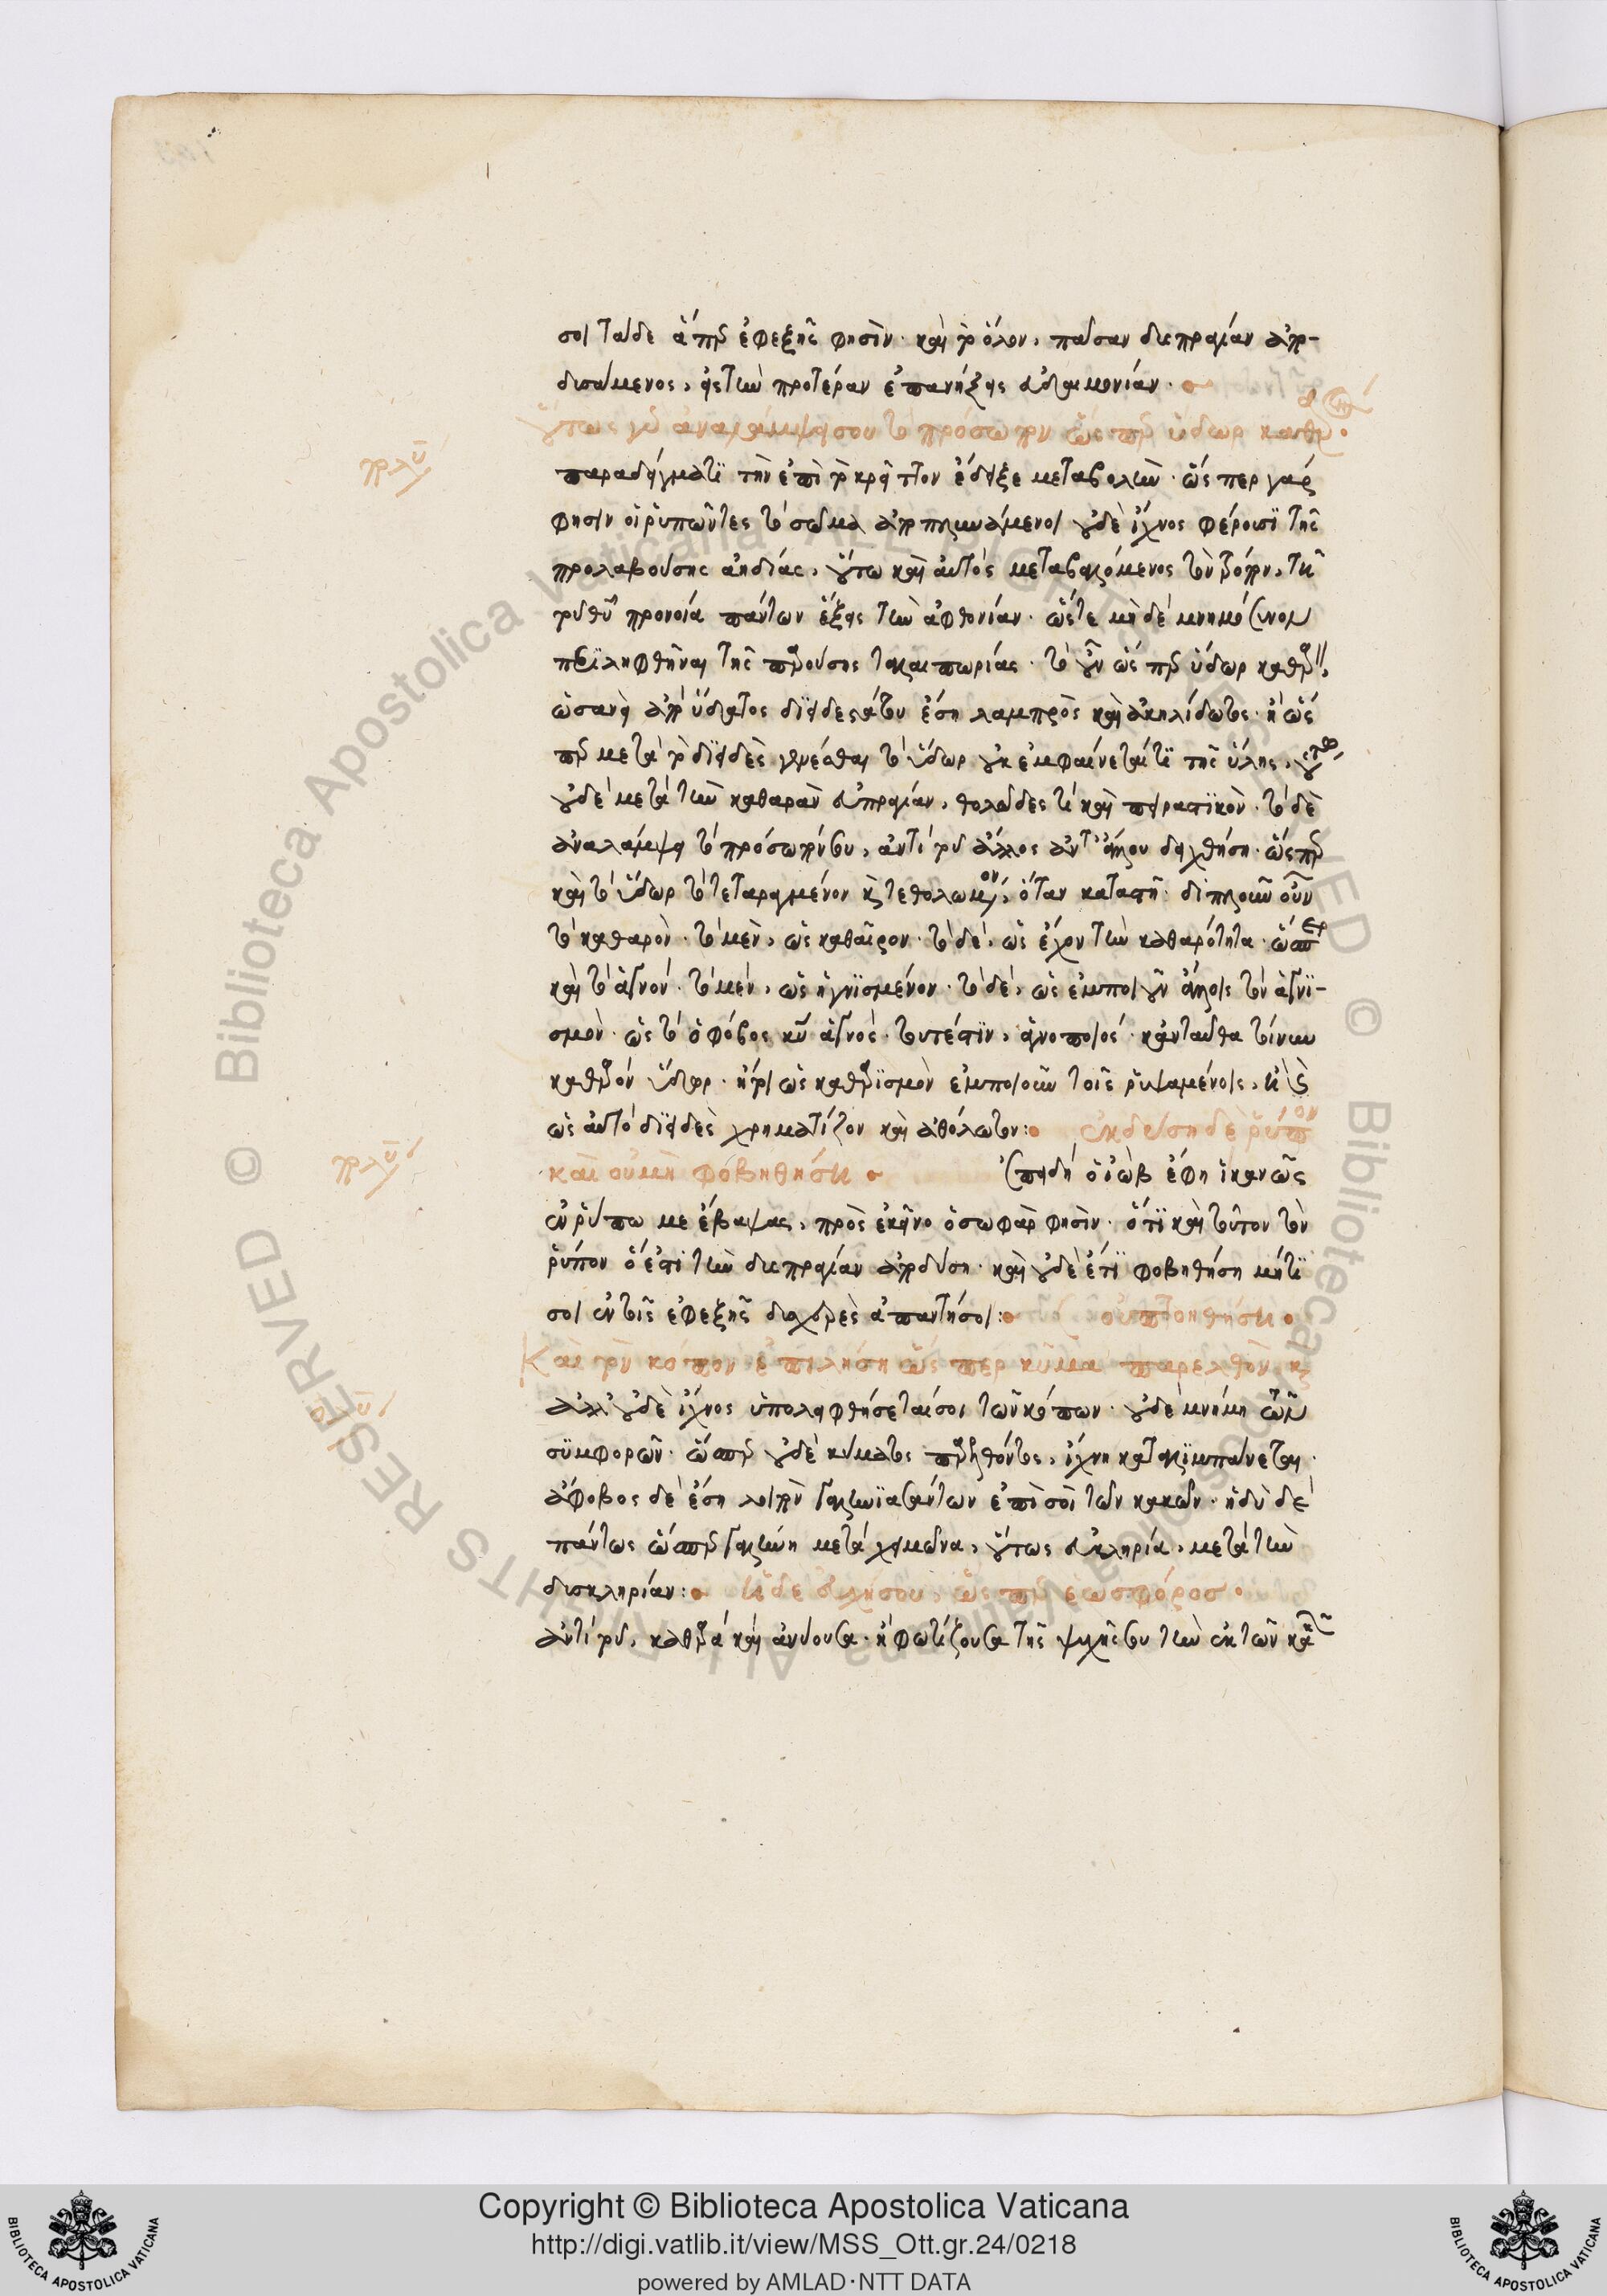 σοι ταῦτα ἅπερ ἐφεξῆς φησίν· καὶ τὸ ὅλον, πᾶσαν δυσπραγίαν ἀπο-
δυσάμενος, εἰς τὴν προτέραν ἐπανήξεις εὐδαιμονίαν·
οὕτως γὰρ ἀναλάμψει σου τὸ πρόσωπον ὥσπερ ὕδωρ καθαρόν·
παραδείγματι τὴν ἐπὶ τὸ κρεῖττον ἔδειξε μεταβολήν· ὥσπερ γάρ
φησιν οἱ ῥυπῶντες τὸ σῶμα ἀποπλυνάμενοι οὐδὲ ἴχνος φέρουσι τῆς
προλαβούσης ἀηδίας, οὕτω καὶ αὐτὸς μεταβαλόμενος τὸν τρόπον, τῇ
τοῦ θεοῦ προνοίᾳ πάντων ἕξεις τὴν ἀφθονίαν· ὥστε μηδὲ μνημόσυνον
τῆς παρούσης ταλαιπωρίας· τὸ οὖν ὥσπερ ὕδωρ καθαρόν,
ὡσανεὶ ἀπὸ ὕδατος διειδεστάτου ἔσῃ λαμπρὸς καὶ ἀκηλίδωτος· ἢ ὥσ
περ μετὰ τὸ διειδὲς γενέσθαι τὸ ὕδωρ οὐκ ἐμφαίνεταί τι τῆς ὕλης, οὕτως
οὐδὲ μετὰ τὴν καθαρὰν εὐπραγίαν, θολῶδές τι καὶ πειρατικόν· τὸ δὲ
ἀναλάμψει τὸ πρόσωπόν σου, ἀντὶ τοῦ ἄλλος ἀντ' ἄλλου δειχθήσῃ· ὥσπερ
καὶ τὸ ὕδωρ τὸ τεταραγμένον καὶ τεθολωμένον, ὅταν καταστῇ· διπλοῦν οὖν
τὸ καθαρόν· τὸ μὲν, ὡς καθαῖρον· τὸ δὲ, ὡς ἔχον τὴν καθαρότητα· ὥσπερ
καὶ τὸ ἁγνόν· τὸ μὲν, ὡς ἡγνισμένον· τὸ δὲ, ὡς ἐμποιοῦν ἄλλοις τὸν ἁγνι-
σμόν· ὡς τὸ ὁ φόβος κυρίου ἁγνός· τουτέστιν, ἁγνοποιός· κἀνταῦθα τοίνυν
καθαρὸν ὕδωρ· ἤτοι ὡς καθαρισμὸν ἐμποιοῦν τοῖς ῥυψαμένοις, ἢ καὶ
ὡς αὐτὸ διειδὲς χρηματίζον καὶ ἀθόλωτον: ἐκδύσῃ δὲ ῥύπον
καὶ οὐ μὴ φοβηθήσῃ
Ἐπειδὴ ὁ ἰὼβ ἔφη ἱκανῶς
ἐν ῥύπῳ με ἔβαψας, πρὸς ἐκεῖνο ὁ σωφάρ φησιν· ὅτι καὶ τοῦτον τὸν
ῥύπον ὅ ἐστι τὴν δυσπραγίαν ἀποδύσῃ· καὶ οὐδὲ ἔτι φοβηθήσῃ μήτι
σοι ἐν τοῖς ἐφεξῆς δυσχερὲς ἀπαντήσοι: οὐ πτοηθήσῃ
Καὶ τὸν κόπον ἐπιλήσῃ ὥσπερ κῦμα παρελθὸν καὶ
ἀλλ' οὐδὲ ἴχνος ὑπολειφθήσεταί σοι τῶν κόπων· οὐδὲ μνήμη τῶν
συμφορῶν· ὥσπερ οὐδὲ κύματος παρελθόντος, ἴχνη καταλιμπάνεται·
ἄφοβος δὲ ἔσῃ λοιπὸν γαληνιασάντων ἐπὶ σοὶ τῶν κακῶν· ἡδὺ δὲ
πάντως ὥσπερ γαλήνη μετὰ χειμῶνα, οὕτως εὐκληρία, μετὰ τὴν
δυσκληρίαν: ἡ δὲ εὐχή σου, ὥσπερ ἑωσφόρος·
ἀντὶ τοῦ, καθαρὰ καὶ ἀνύουσα· ἢ φωτίζουσα τῆς ψυχῆς σου τὴν ἐκ τῶν κακῶν
Copyright © Biblioteca Apostolica Vaticana
http://digi.vatlib.it/view/MSS_Ott.gr.24/0218
powered by AMLAD·NTT DATA